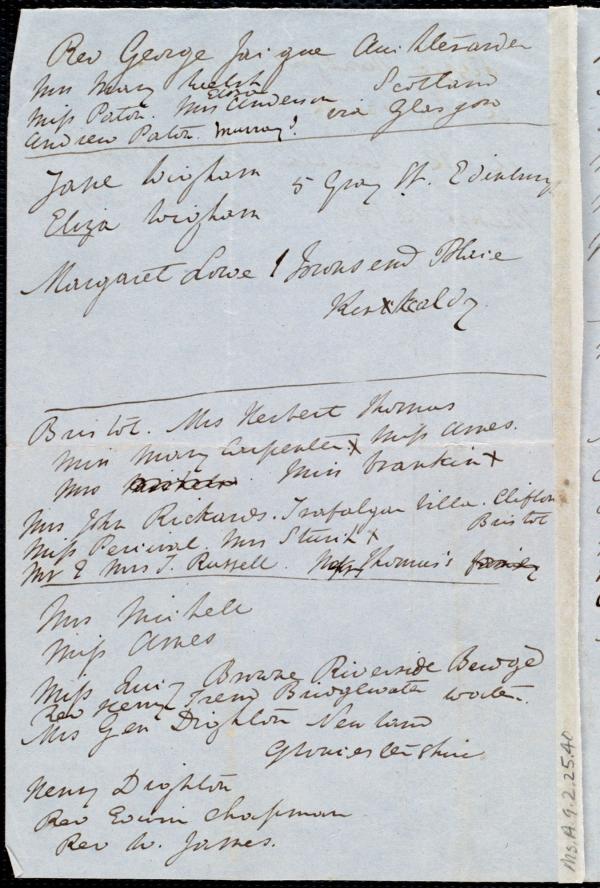 Rev George Jaique Auchterarder
Mrs Mary Welsh Scotland
Eliza
Miss Paton. Mrs Anderson via Glasgow
Andrew Paton. Murray
Jane Wigham
5 Gray St. Edinburg
Eliza Wigham
Margaret Lowe 1 Townsend Place
Kirkcaldy
Bristol. Mrs Herbert Thomas
Miss Mary Carpenter x Miss Ames.
Mrs Miss Brankin x
Mrs John Rickards. Trafalgar Villa. Clifton
Bristol
Miss Percival, Mrs Sturch x
Mr & Mrs J. Russell. Thomas's family
Mrs Michell
Miss Ames
Miss Browne Riverside Bewdley
Rev Henry Trend Bridgewater
Mrs Gen Dighton Newland
Gloucestershire
Henry Dighton
Rev Edwin Chapman
Rev W. James.
Ms.A.9.2.25.40